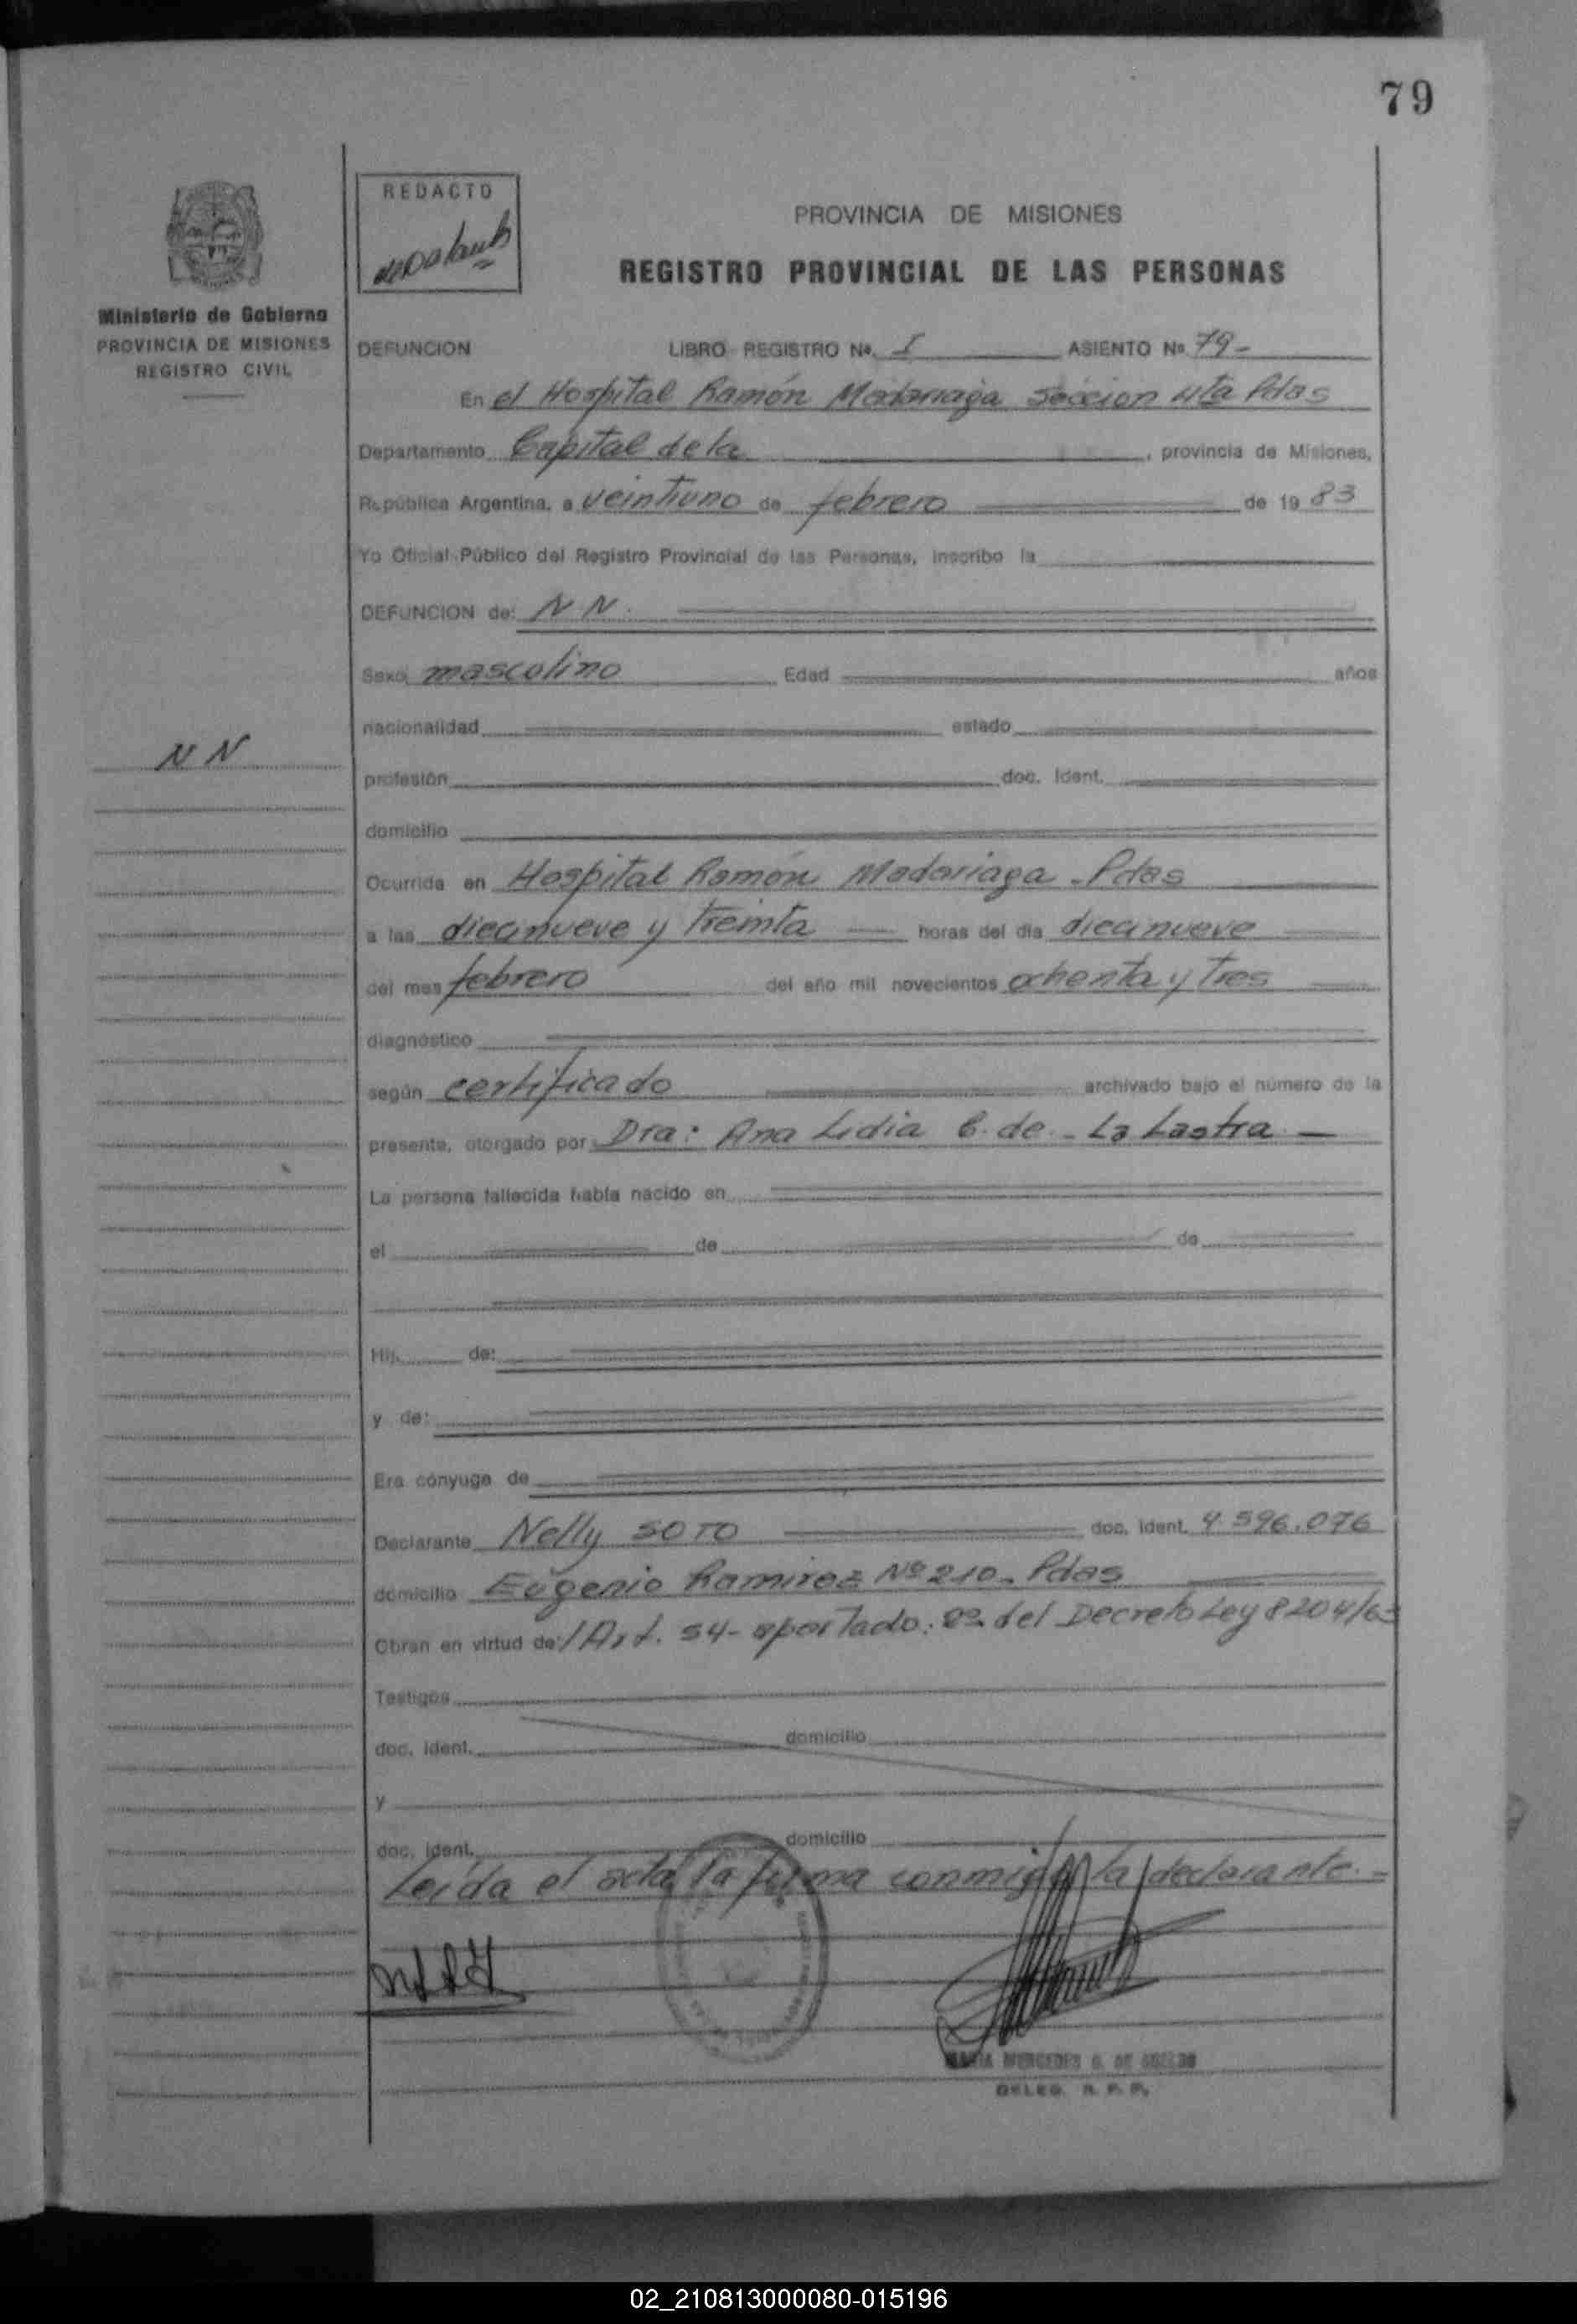 79
REDACTO
PROVINCIA DE MISIONES
REGISTRO PROVINCIAL DE LAS PERSONAS
Ministerio de Gobierno
PROVINCIA DE MISIONES
REGISTRO CIVIL
DEFUNCION LIBRO - REGISTRO No. I ASIENTO No 79-
En el Hospital Ramón Madariaga Seccion 4ta Pdas
Departamento Capital de la , provincia de Misiones,
República Argentina, a veintiuno de febrero de 19 83
Yo Oficial Público del Registro Provincial de las Personas, inscribo la
DEFUNCION de: N N.
Sexo masculino Edad años
nacionalidad estado
N N
profesión doc. Ident.
domicilio
Ocurrida en Hospital Ramón Madariaga - Pdas
a las diecinueve y treinta horas del día diecinueve
del mes febrero del año mil novecientos ochenta y tres
diagnóstico
según certificado archivado bajo el número de la
presente, otorgado por Dra: Ana Lidia C. de - La Lastra -
La persona fallecida había nacido en
el de de
Hij de:
y de:
Era cónyuge de
Declarante Nelly SOTO doc. Ident. 4.596.076
domicilio Eugenio Ramirez Nº 210- Pdas
Obran en virtud de: Art. 54- apartado: 2º del Decreto Ley 8204/63
Testigos
doc. Ident. domicilio
y
doc. Ident. domicilio
Leída el acta, la firma conmigo la declarante.-
MARIA MERCEDES G. DE
DELEG. R. P. P.
02_210813000080-015196